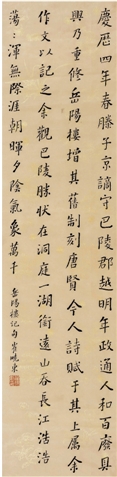 慶曆四年春滕子京謫守巴陵郡越明年政通人和百廢具
興乃重修岳陽樓增其舊制刻唐賢今人詩賦于其上屬余
作文以記之余觀巴陵勝狀在洞庭一湖銜遠山吞長江浩浩
蕩:渾無際涯朝暉夕陰氣象萬千 岳陽樓記句